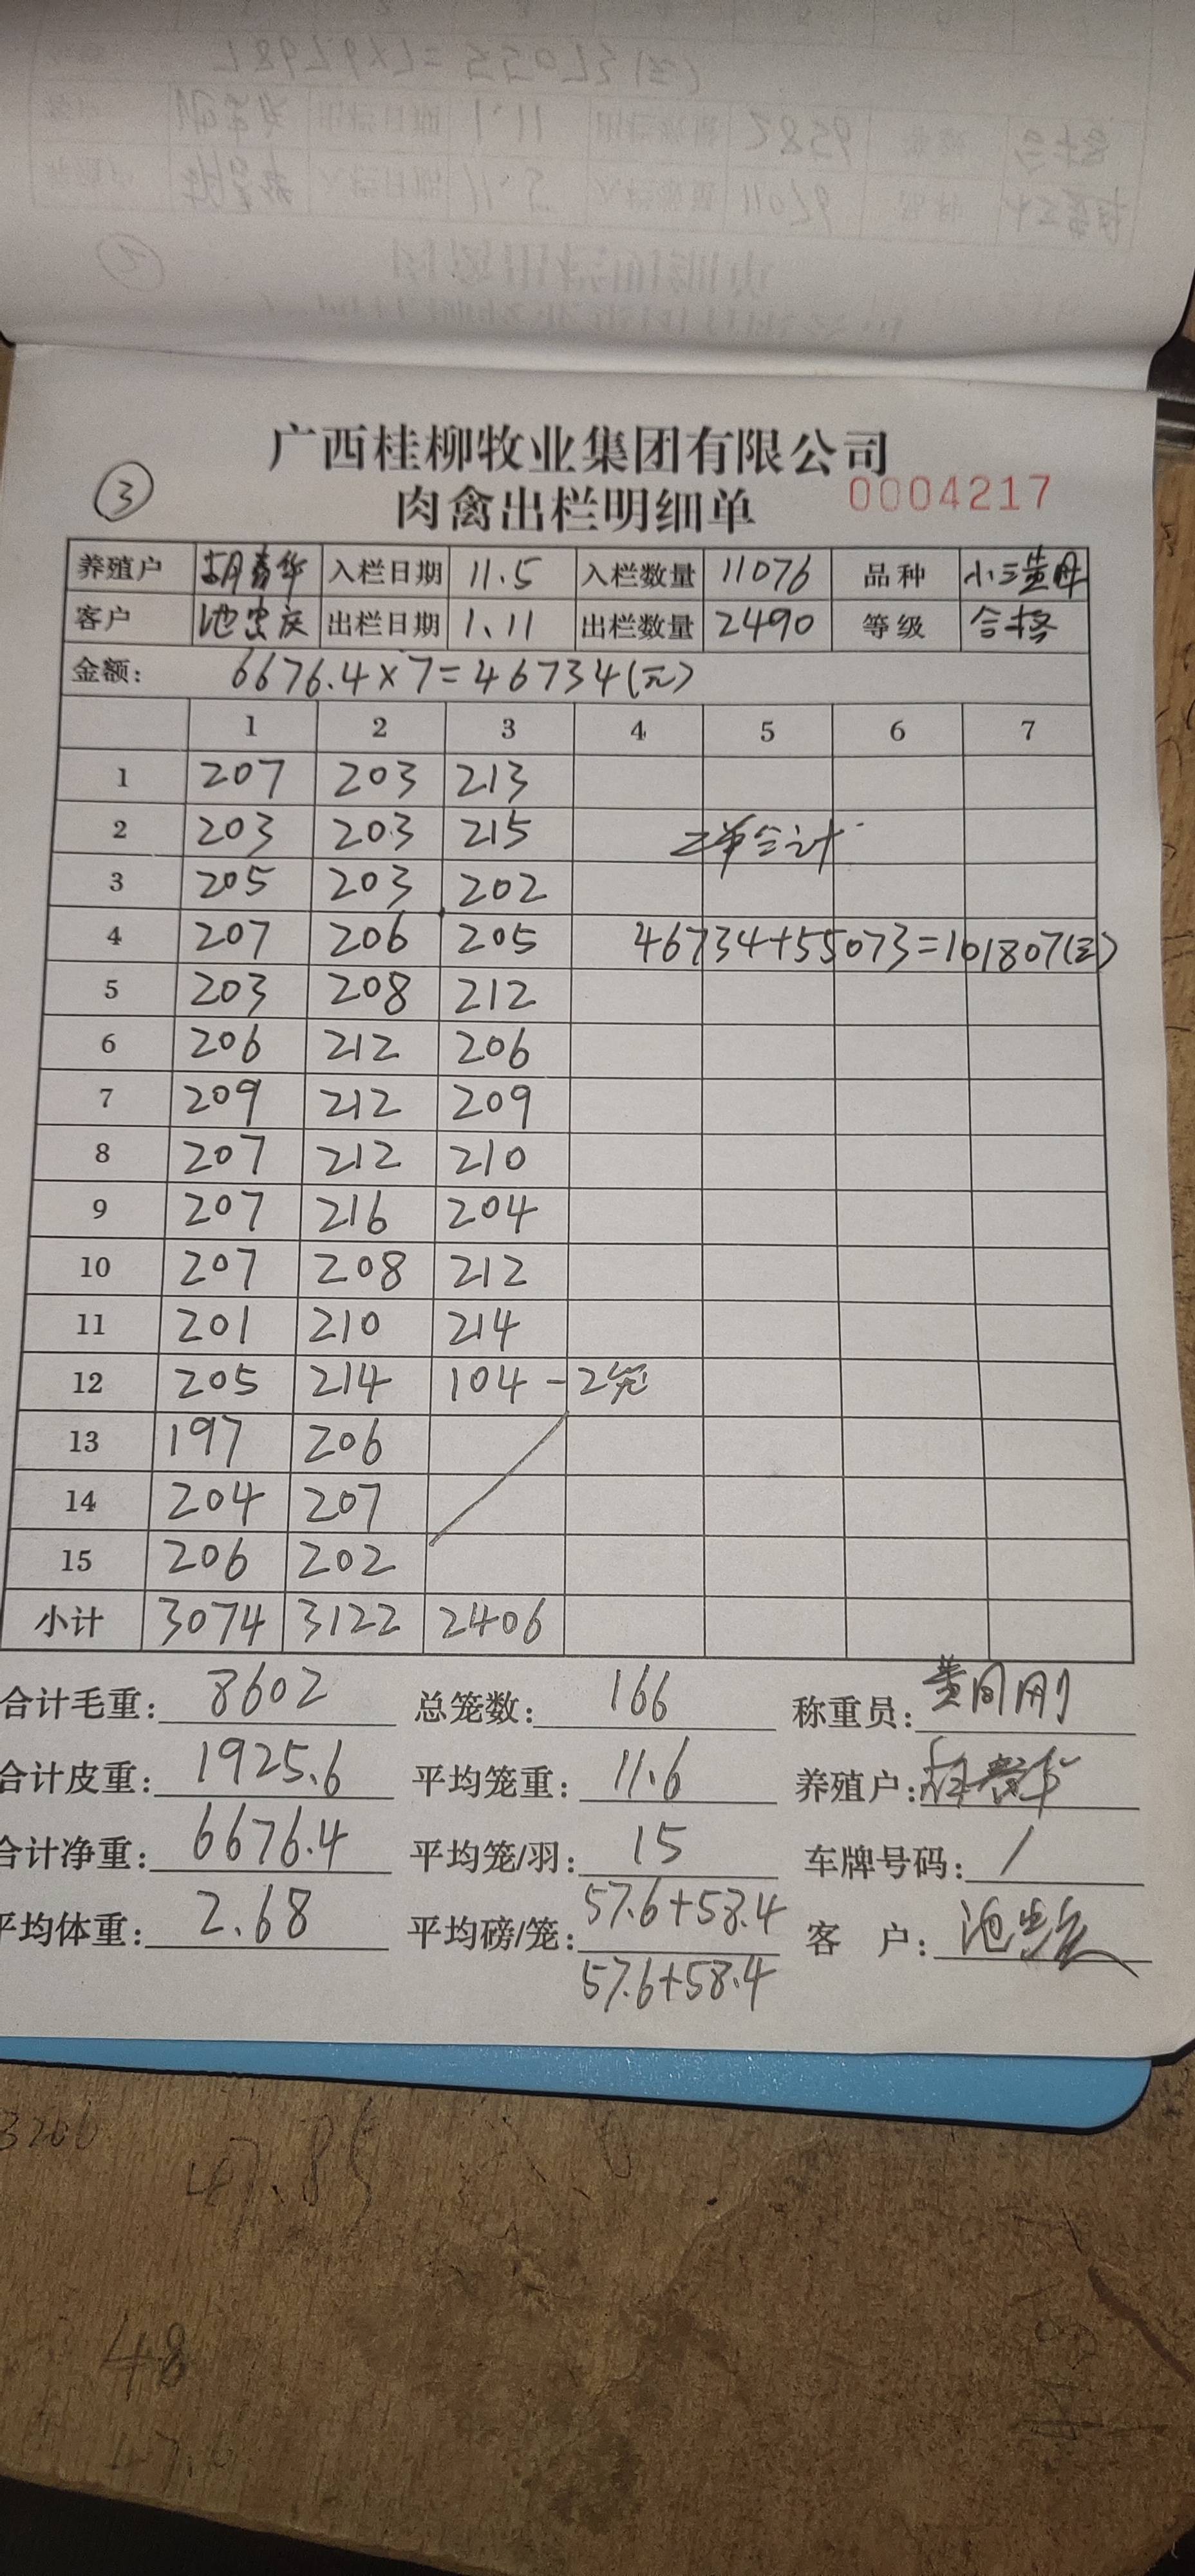 ③
广西桂柳牧业集团有限公司
肉禽出栏明细单 0004217
养殖户 胡春华 入栏日期 11.5 入栏数量 11076 品种 小三黄母
客户 池忠庆 出栏日期 1.11 出栏数量 2490 等级 合格
金额: 6676.4×7=46734(元)
1 2 3 4 5 6 7
1 207 203 213
2 203 203 215 二单合计
3 205 203 202
4 207 206 205 46734+55073=101807(元)
5 203 208 212
6 206 212 206
7 209 212 209
8 207 212 210
9 207 216 204
10 207 208 212
11 201 210 214
12 205 214 104-2笼
13 197 206
14 204 207
15 206 202
小计 3074 3122 2406
合计毛重: 8602 总笼数: 166 称重员:
合计皮重: 1925.6 平均笼重: 11.6 养殖户: 胡春华
合计净重: 6676.4 平均笼/羽: 15 车牌号码: /
平均体重: 2.68 平均磅/笼: 57.6+58.4 客 户: 池忠庆
57.6+58.4
3206
47.85
48
47.6